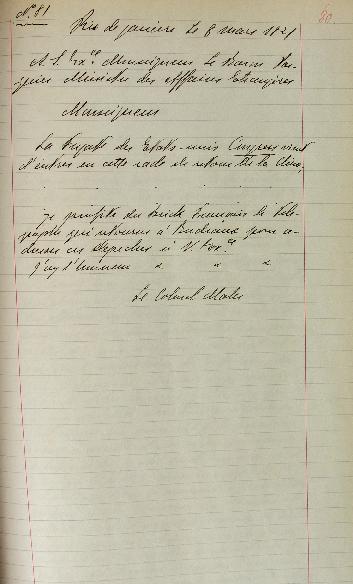 N.º 81
80
Rio de janeiro le 8 mars 1821
A. S. Ex.ce Monseigneur Le Baron Pas-
quier Ministre des Affaires Etrangères
Monseigneur
La Fregatte des Etats-unis Congress vient
d'entrer en cette rade de retour de la Chine,
. . . .
Je profite du Brick Francais le Télé-
graphe qui retourne à Bordeaux pour a-
dresser ces depeches à V. Exc.ce
J'ay l'honneur " " "
Le Colonel Maler